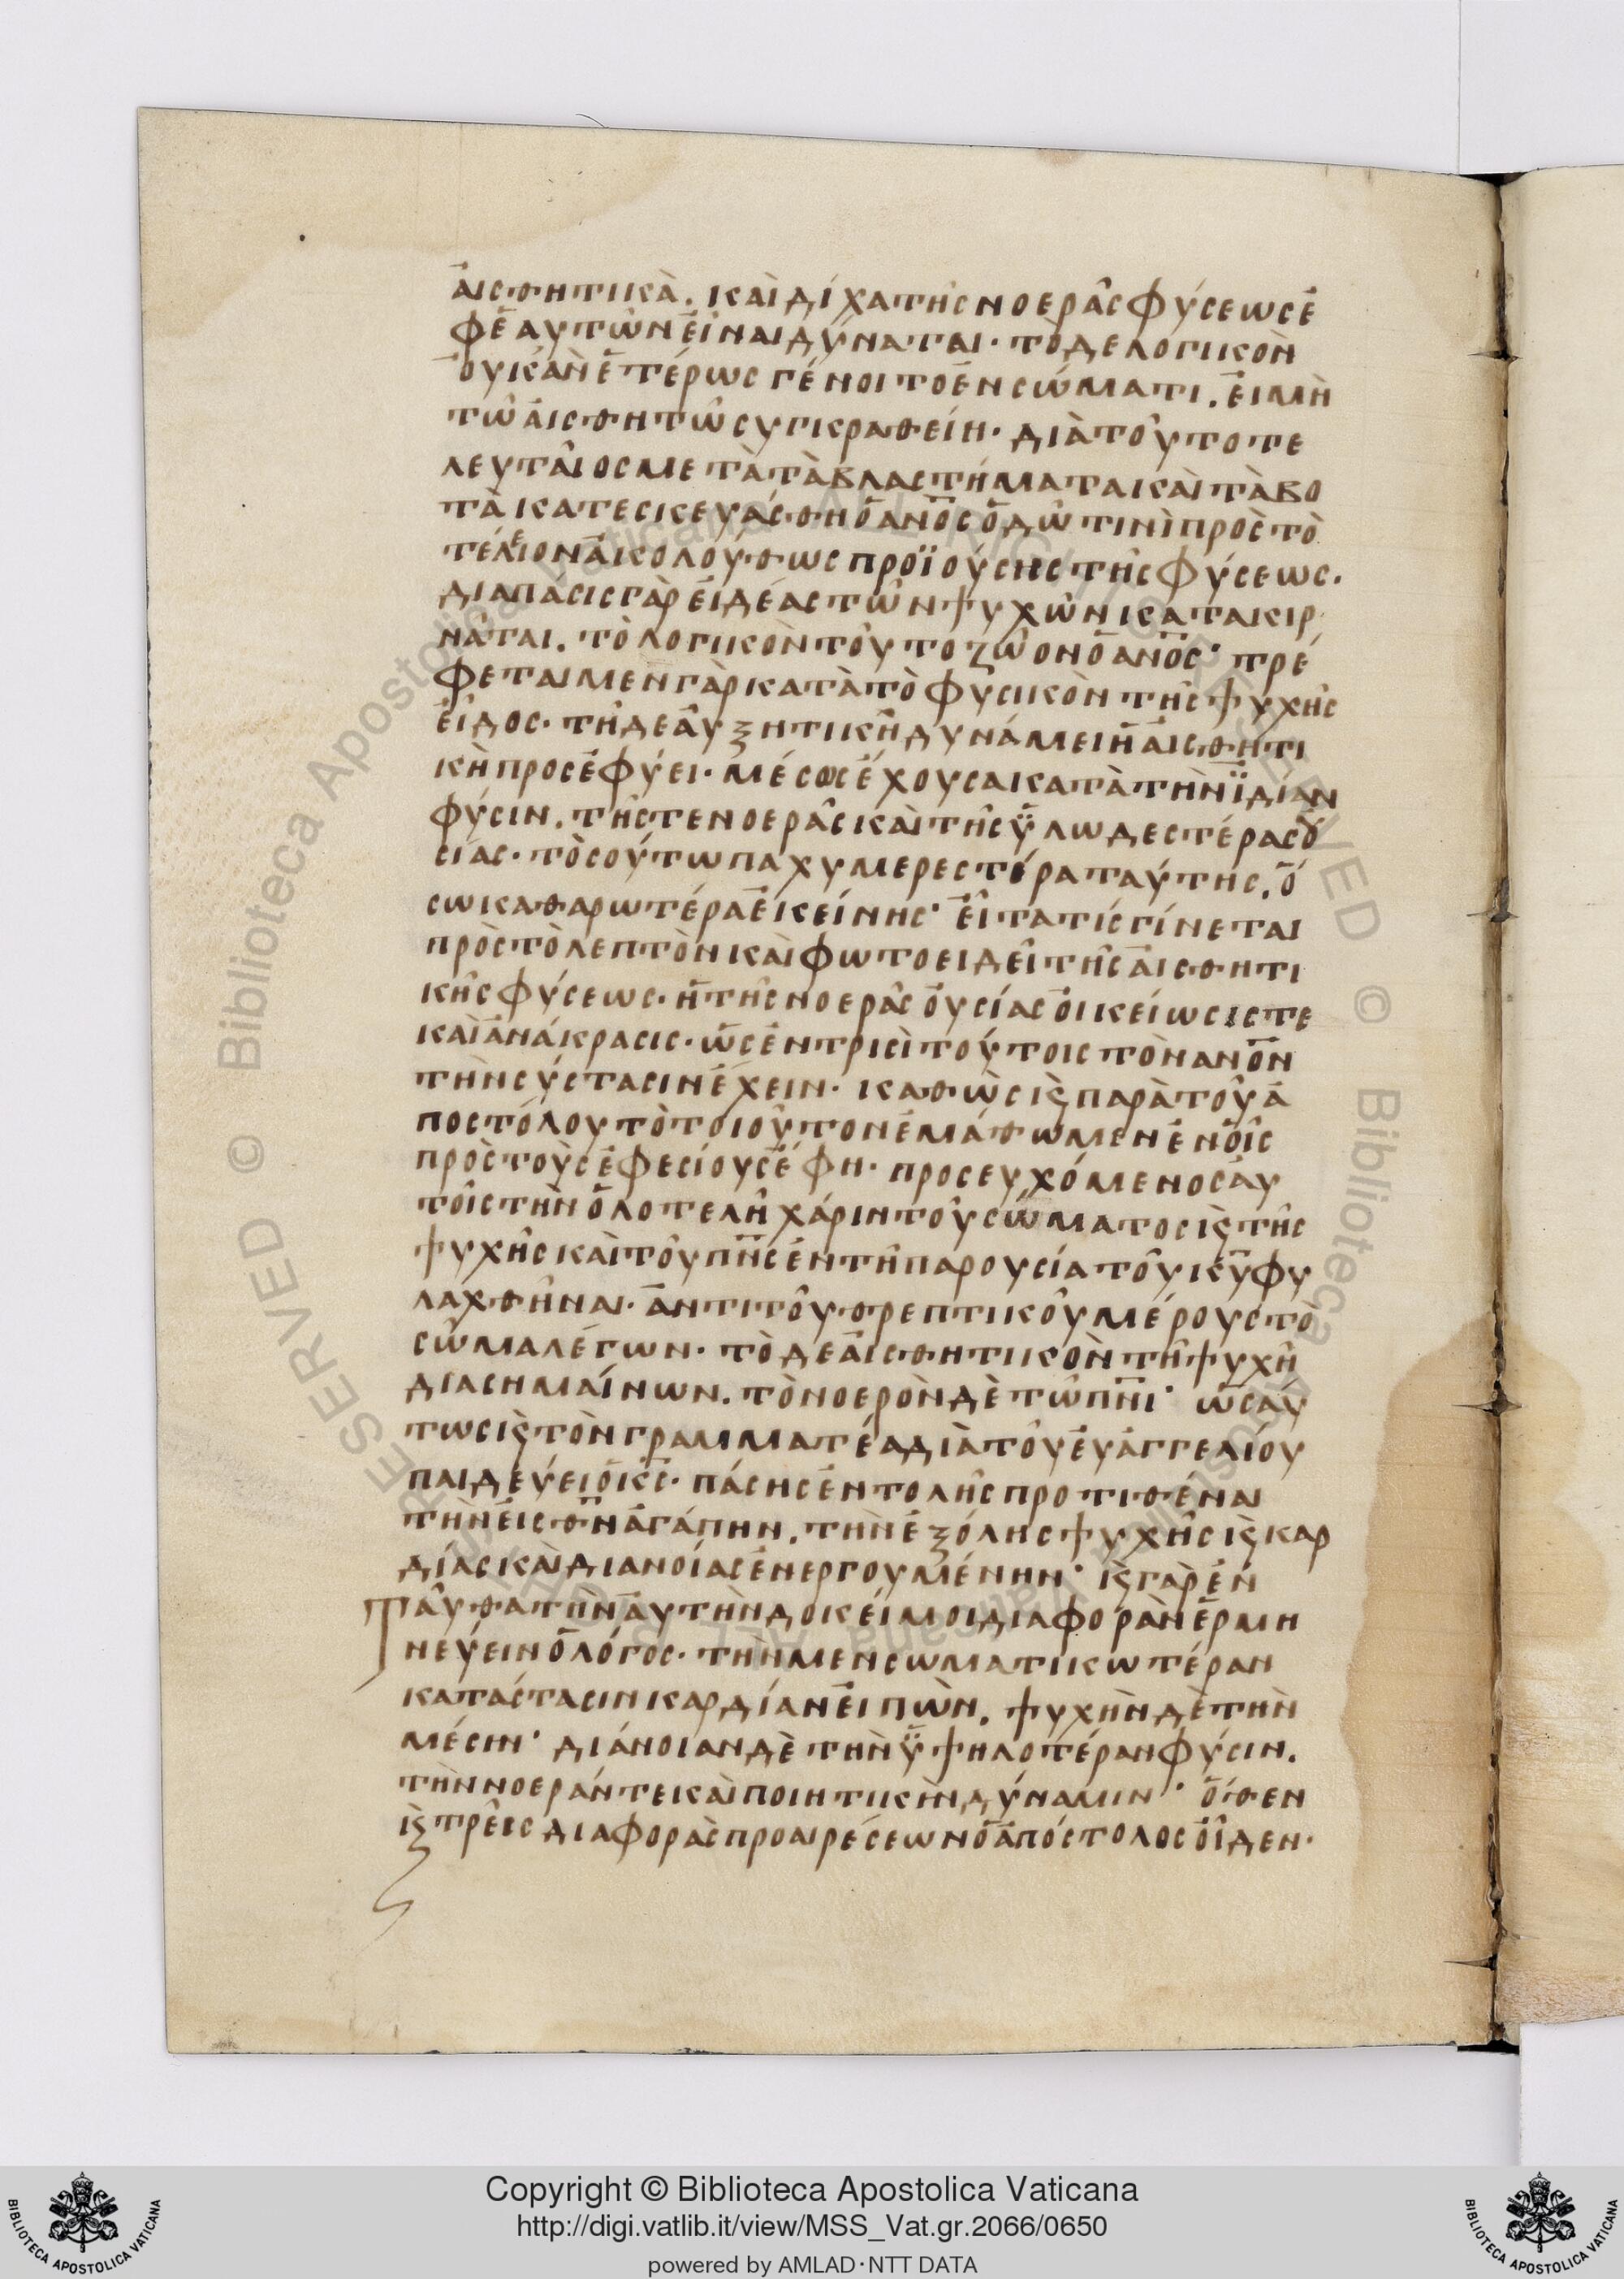 ἀισθητικὰ. καὶ δίχα τῆς νοερᾶς φύσεως ἐ
φ ἑαυτῶν εἶναι δύναται· τὸ δε λογικὸν
οὐκ ἂν ἑτέρως γένοιτο ἐν σώματι. εἰ μὴ
τῶ αἰσθητῶ συγκραθείη· διὰ τοῦτο τε
λευταῖος με τὰ τὰ βλαστήματα καὶ τὰ βο
τὰ κατεσκευάσθη ὁ ἄνος ὁδῶ τινὶ προς τὸ
τέλειον ἀκολούθως προϊούσης τῆς φύσεως.
διαπασις γὰρ εἰδέας τῶν ψυχῶν κατακιρ
νᾶται. τὸ λογικὸν τοῦτο ζῶον ὁ ἄνος· τρέ
φεται μεν γὰρ κατὰ τὸ φυσικὸν τῆς ψυχῆς
εἶδος· τῆ δε αὐξητικῆ δυνάμει ἡ αἰσθητι
κὴ προσεφύει· μέσως ἔχουσα κατὰ τὴν ἰδίαν
φύσιν. τῆς τε νοερᾶς καὶ τῆς ὑλωδεστέρας οὐ
σίας· τὸσούτω παχυμερεστέρα ταύτης. ὅ
σω καθαρωτέρα ἐκείνης· εἶτα τίς γίνεται
πρὸς τὸ λεπτὸν καὶ φωτοειδεῖ τῆς αἰσθητι
κῆς φύσεως. ἡ τῆς νοερᾶς οὐσίας οἰκείωσις τε
καὶ ἀνάκρασις· ὡς ἐν τρισὶ τούτοις τὸν ανον
τὴν σύστασιν ἔχειν. καθὼς κ παρὰ τοῦ ἀ
ποστόλου τὸ τοιοῦτον ἐμάθωμεν ἐν οἷς
πρὸς τοὺς ἐφεσίους ἔφη· προσευχόμενος αὐ
τοῖς τὴν ὁλοτελῆ χάριν τοῦ σώματος κ τῆς
ψυχῆς καὶ τοῦ πνς ἐν τῆ παρουσία τοῦ κυ φυ
λαχθῆναι· ἀντι τοῦ θρεπτικοῦ μέρους τὸ
σῶμα λέγων· τὸ δε αἰσθητικὸν τῆ ψυχῆ
διασημαίνων. τὸ νοερὸν δὲ τῶ πνι· ὡσαύ
τως κ τὸν γραμματέα διὰ τοῦ εὐαγγελίου
παιδεύει ὁ κς· πάσης ἐντολῆς προτιθέναι
τὴν εἰς θν ἀγάπην. τὴν ἐξόλης ψυχῆς κ καρ
δίας καὶ διανοίας ἐνεργουμένην· κ γὰρ ἐν
Ταῦθα τὴν αὐτὴν δοκεί μοι διαφορὰν ἑρμη
νεύειν ὁ λόγος· τὴν μεν σωματικωτέραν
κατάστασιν καρδίαν εἰπὼν. ψυχὴν δὲ τὴν
μέσην· διάνοιαν δὲ τὴν ὑψηλοτέραν φύσιν.
τὴν νοεράν τε καὶ ποιητικὴν δύναμιν· ὅθεν
κ τρεῖς διαφορὰς προαιρέσεων ὁ ἀπόστολος οἶδεν·
Copyright © Biblioteca Apostolica Vaticana
http://digi.vatlib.it/view/MSS_Vat.gr.2066/0650
powered by AMLAD·NTT DATA
BIBLIOTECA APOSTOLICA VATICANA
BIBLIOTECA APOSTOLICA VATICANA